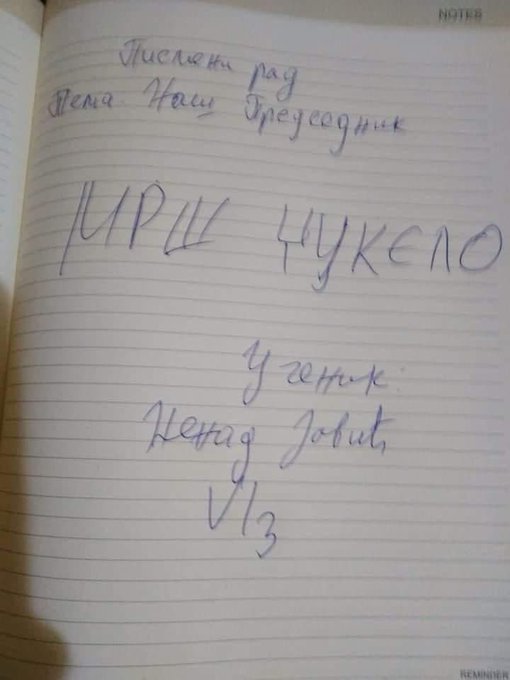 NOTES
Писмени рад
Тема Наш Председник
МРШ ЏУКЕЛО
Ученик:
Ненад Јовић
VI3
REMINDER